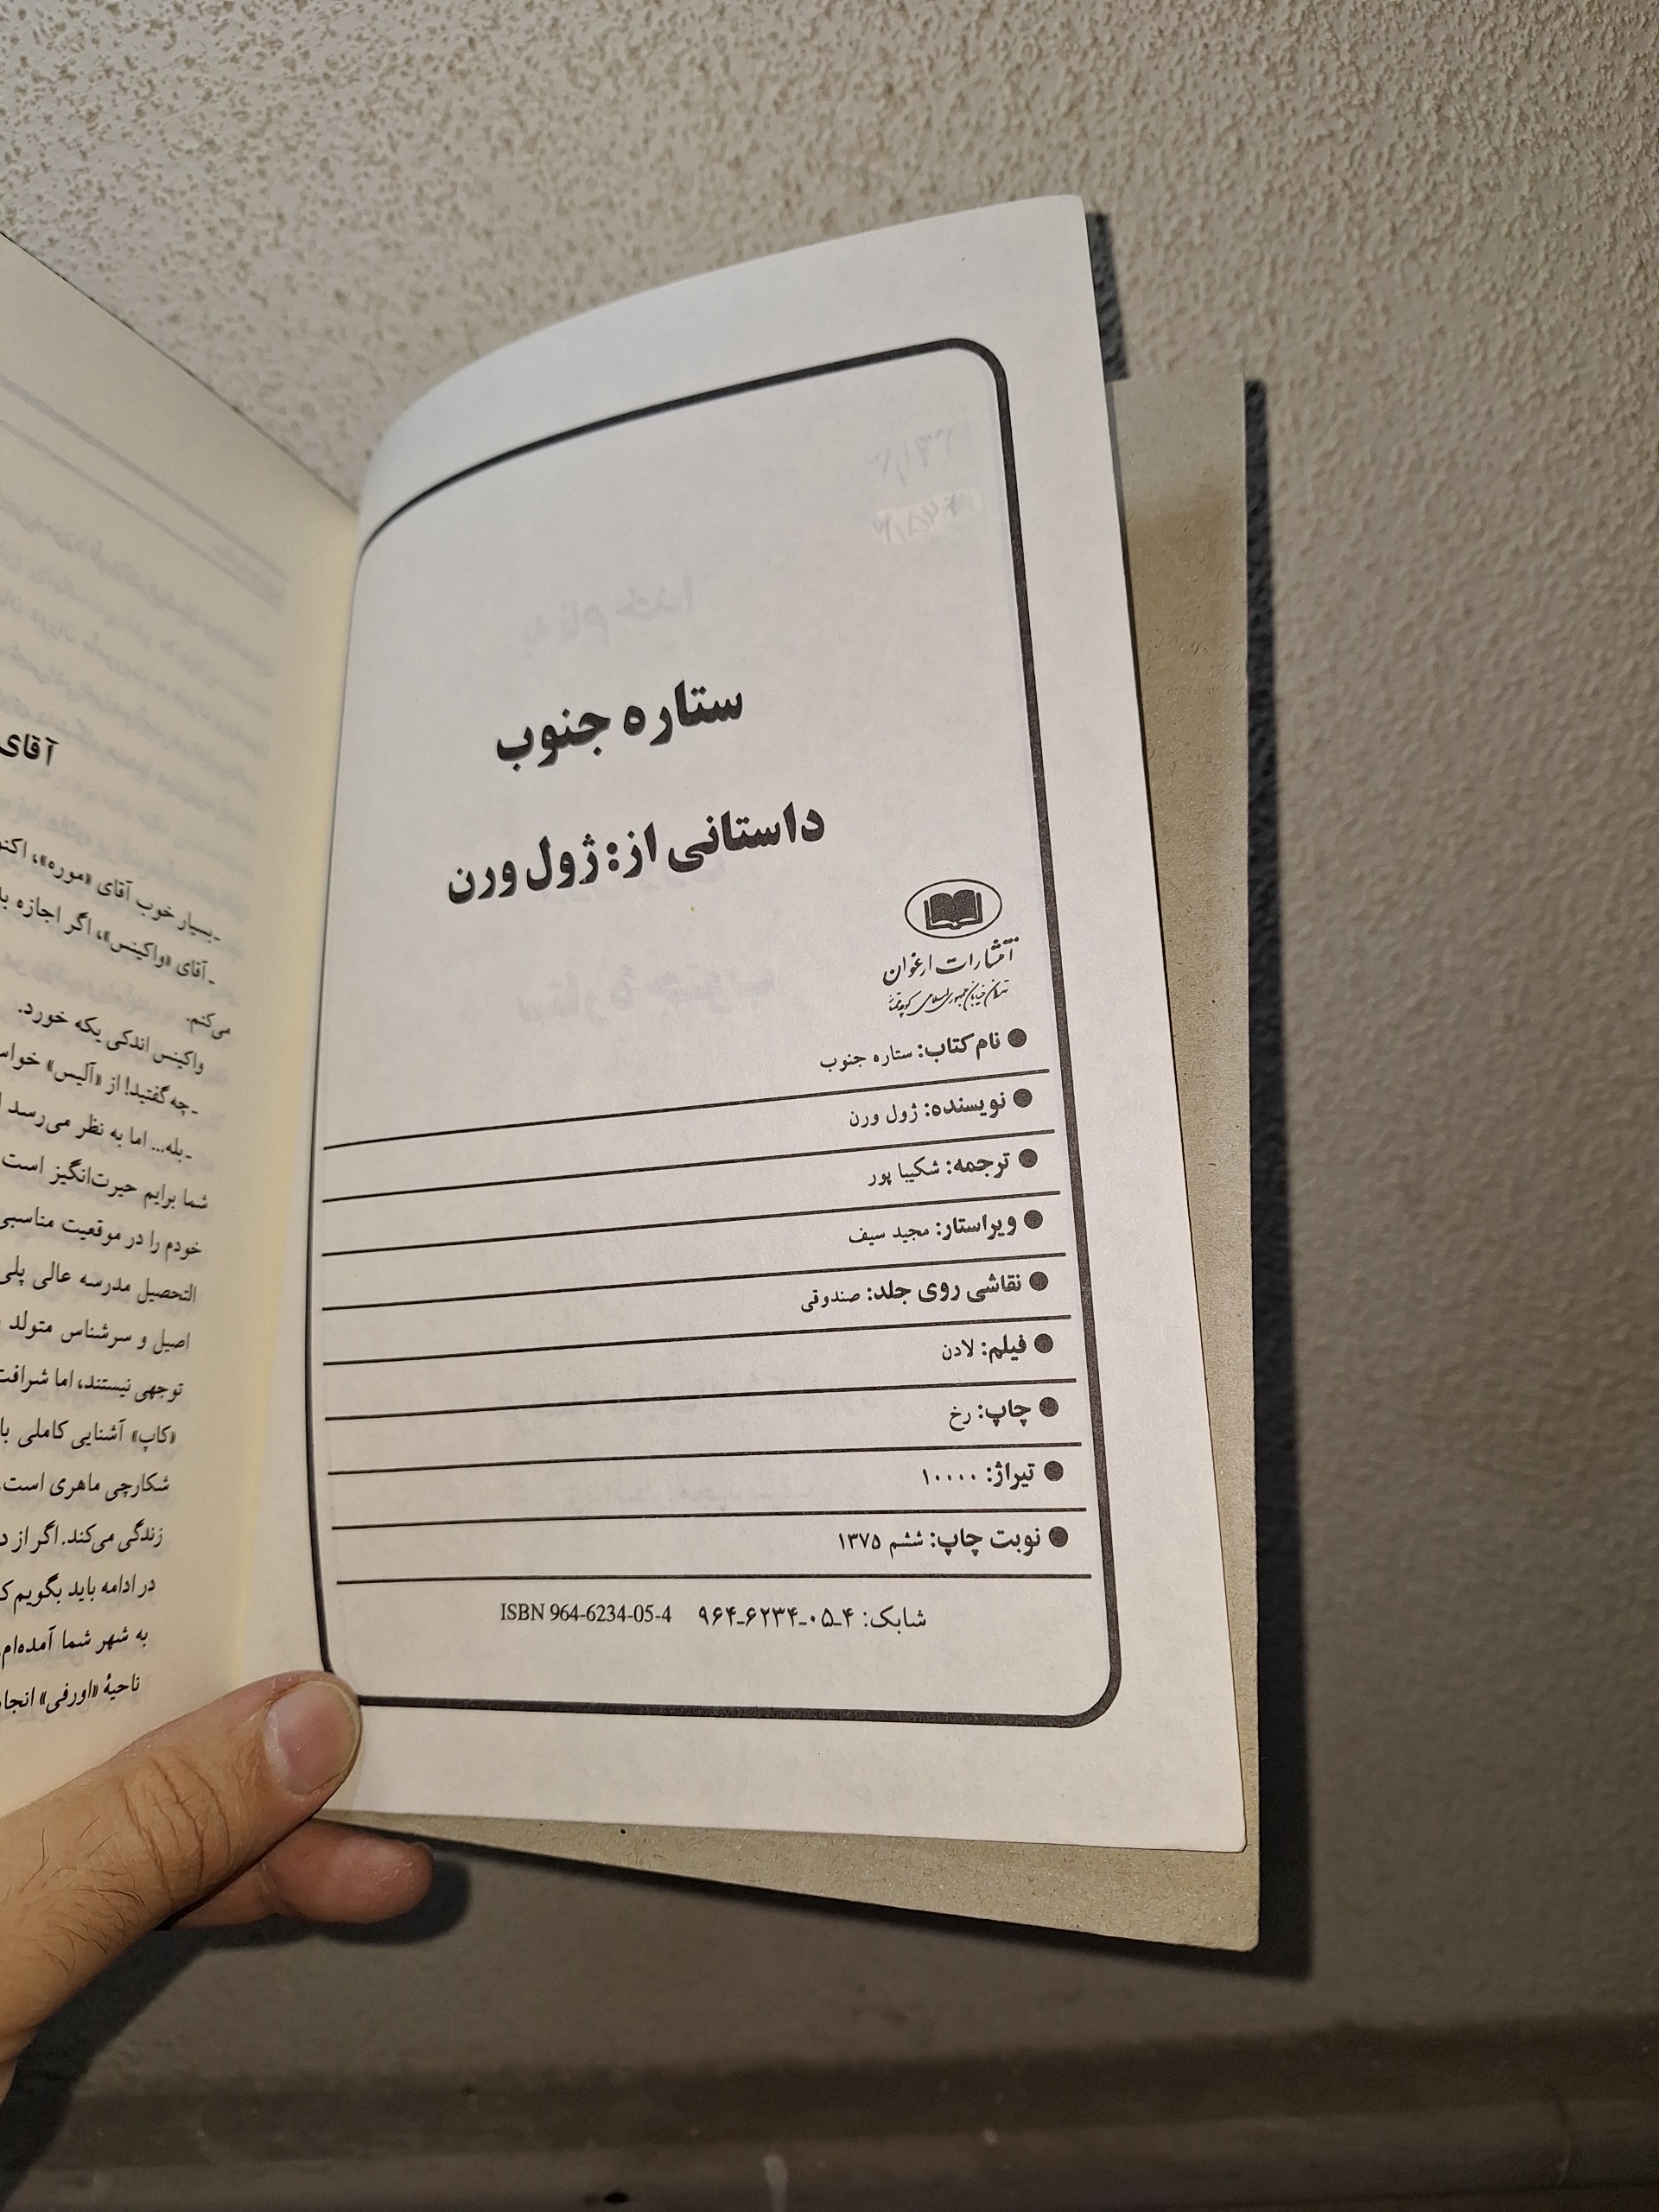 ستاره جنوب
داستانی از: ژول ورن
انتشارات ارغوان
تهران خیابان جمهوری اسلامی کوچه
● نام کتاب: ستاره جنوب
● نویسنده: ژول ورن
● ترجمه: شکیبا پور
● ویراستار: مجید سیف
● نقاشی روی جلد: صندوقی
● فیلم: لادن
● چاپ: رخ
● تیراژ: ۱۰۰۰۰
● نوبت چاپ: ششم ۱۳۷۵
شابک: ۴-۰۵-۶۲۳۴-۹۶۴ ISBN 964-6234-05-4
آقای
ـ بسیار خوب آقای «موره»، اکنو
ـ آقای «واکینس»، اگر اجازه
می‌کنم.
واکینس اندکی یکه خورد.
ـ چه گفتید! از «آلیس» خواس
ـ بله... اما به نظر می‌رسد
شما برایم حیرت‌انگیز است
خودم را در موقعیت مناسبی
التحصیل مدرسه عالی پلی
اصیل و سرشناس متولد
توجهی نیستند، اما شرافت
«کاپ» آشنایی کاملی با
شکارچی ماهری است
زندگی می‌کند. اگر از د
در ادامه باید بگویم ک
به شهر شما آمده‌ام
ناحیهٔ «اورفی» انجا